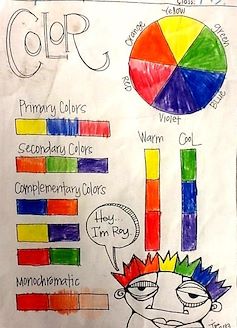 Class:
COLOR
Yellow
Orange
green
Red
Blue
Violet
Primary Colors
Secondary Colors
Complementary Colors
Monochromatic
Warm
Cool
Hey...
I'm Roy